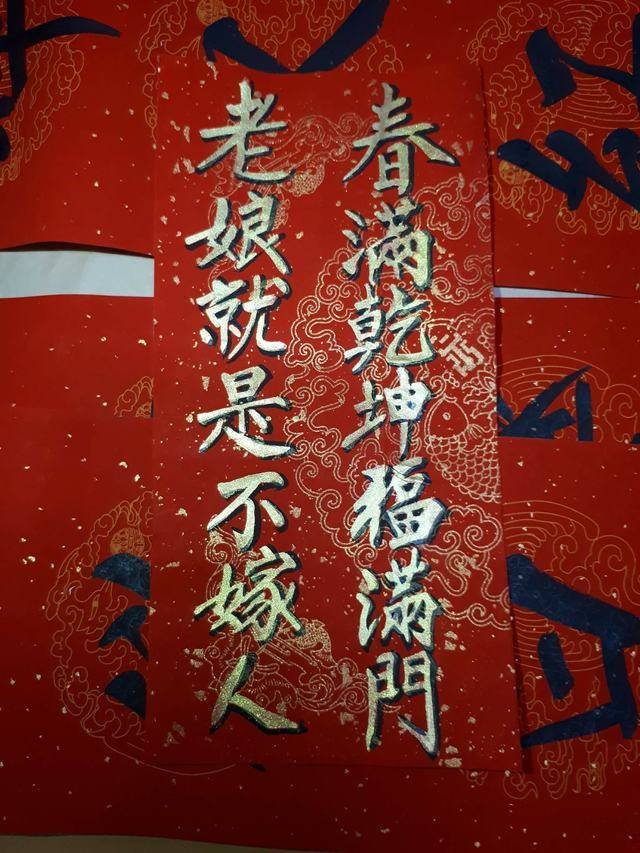 春滿乾坤福滿門
老娘就是不嫁人